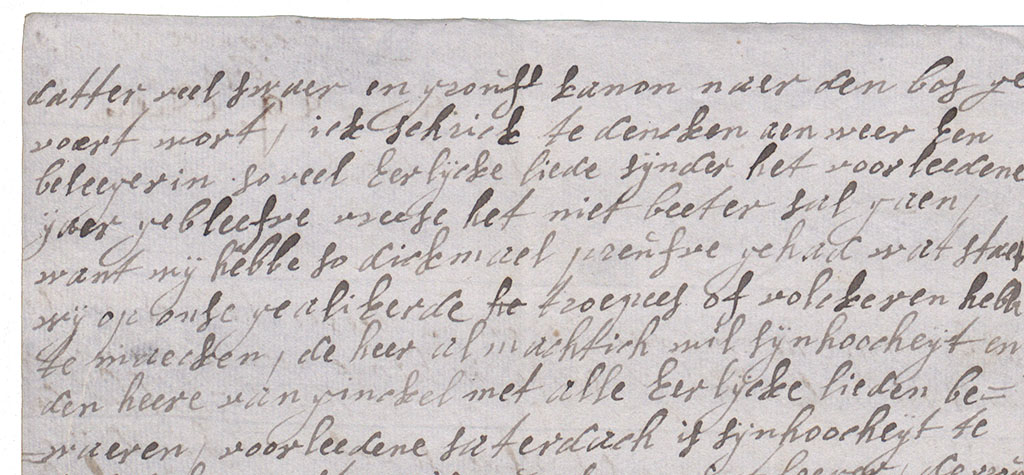 datter veel swaer en grouff kanon naer den bos ge
voert wort, ick schrick te dencken aen weer Een
beleegerin so veel Eerlycke liede sÿnder het voorleedene
ÿaer gebleefve vreese het niet beeter sal gaen,
want wy hebbe so dickmael preufve gehad wat staet
wy op onse gealikerde troepees of volckeren hebbe
te maecken, de heer almachtich wil synhoocheyt en
den heere van ginckel met alle Eerlycke lieden be=
waeren, voorleedene saterdach is synhoocheyt te